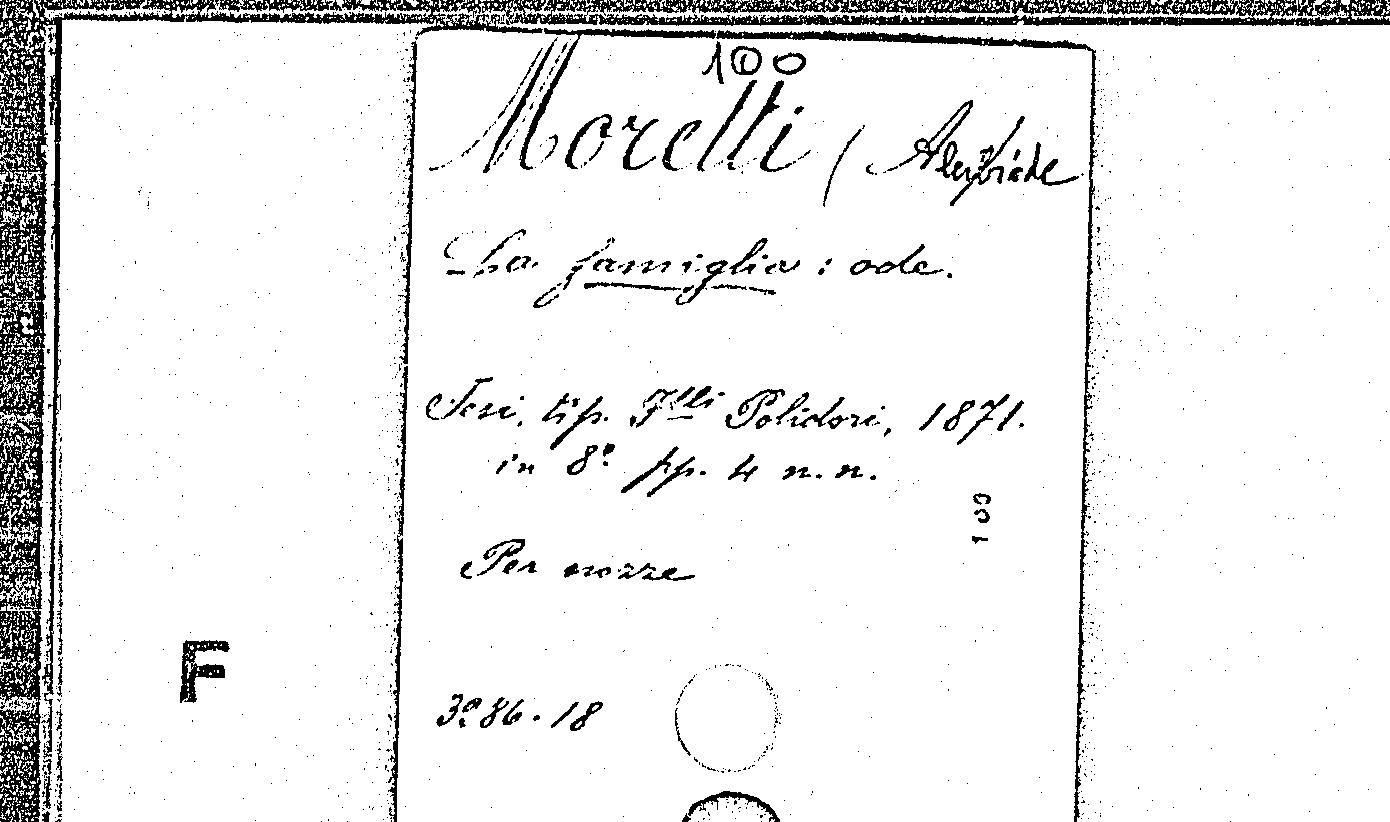 100
Moretti (
La famiglia : ode.
Jesi, tip. Flli Polidori, 1871.
in 8º pp. 4 n. n.
100
Per nozze
F
3º 86 . 18